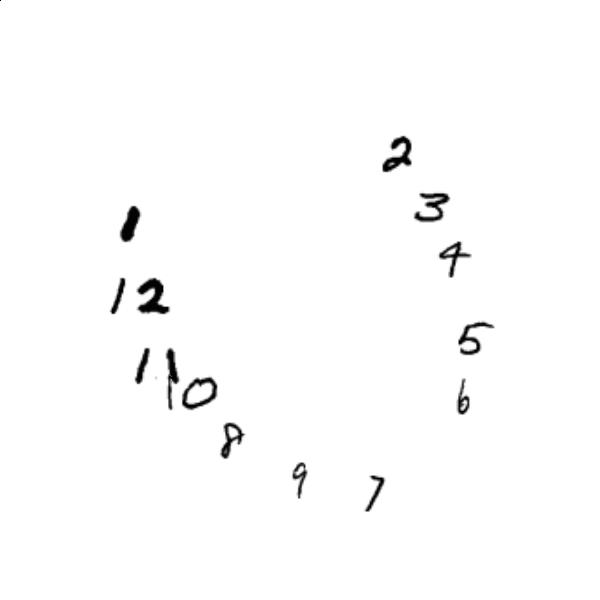 2
3
1
4
12
5
11
10
6
8
9
7